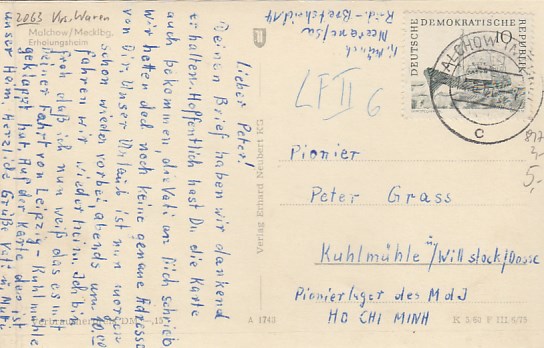 2063 Krs. Waren
Malchow/Mecklbg.
Erholungsheim
Meerane/Sa
Lieber Peter!
Deinen Brief haben wir dankend
erhalten. Hoffentlich hast Du die Karte
auch bekommen, die Vati an Dich schrieb
wir hatten doch noch keine genaue Adresse
von Dir. Unser Urlaub ist nun morgen
schon wieder vorbei, abends um 10 00
fahren wir wieder heim. Ich bin
froh daß ich nun weiß das es mit
Deiner Fahrt von Leipzig - Kuhlmühle
geklappt hat. Auf der Karte das ist
unser Heim. Herzliche Grüße Vati u. Mutti
LF II 6
DEUTSCHE DEMOKRATISCHE REPUBLIK
10
MALCHOW
c
Pionier
Peter Grass
Kuhlmühle ü/Wittstock/Dosse
Pionierlager des MdJ
HO CHI MINH
Verlag Erhard Neubert KG
A 1743
K 3/60 F III/6/75
5,